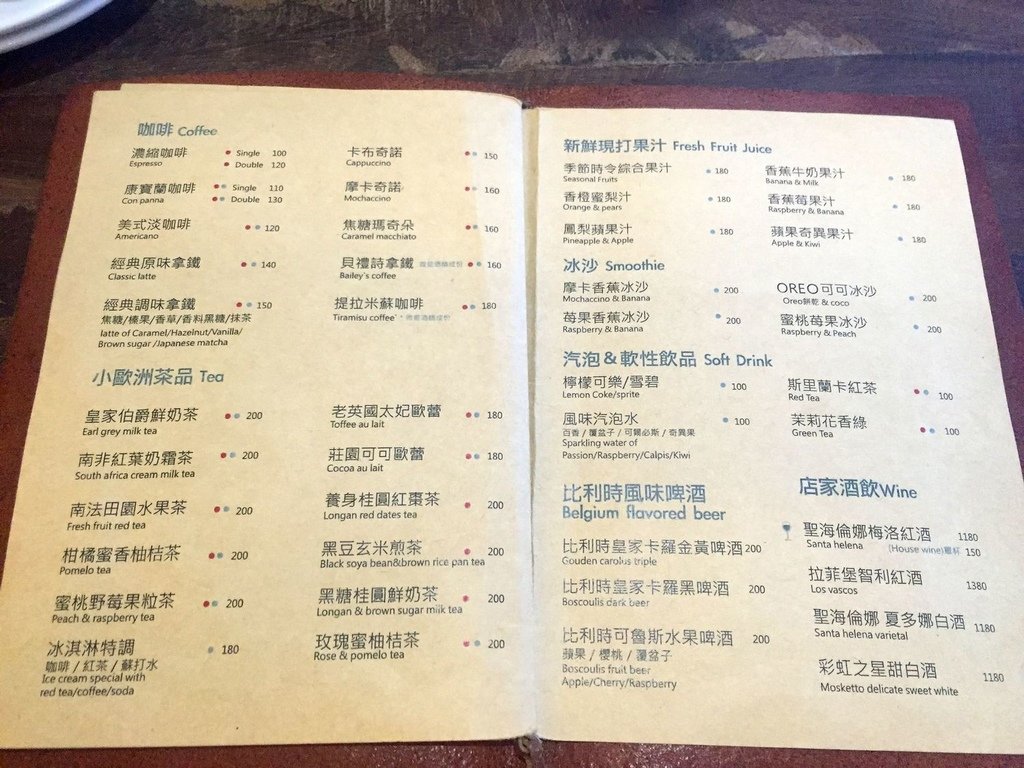 咖啡 Coffee
濃縮咖啡 Single 100
Espresso Double 120
康寶蘭咖啡 Single 110
Con panna Double 130
美式淡咖啡 120
Americano
經典原味拿鐵 140
Classic latte
經典調味拿鐵 150
焦糖/榛果/香草/香料黑糖/抹茶
latte of Caramel/Hazelnut/Vanilla/
Brown sugar /Japanese matcha
卡布奇諾 150
Cappuccino
摩卡奇諾 160
Mochaccino
焦糖瑪奇朵 160
Caramel macchiato
貝禮詩拿鐵 160
Bailey's coffee
提拉米蘇咖啡 180
Tiramisu coffee
小歐洲茶品 Tea
皇家伯爵鮮奶茶 200
Earl grey milk tea
南非紅葉奶霜茶 200
South africa cream milk tea
南法田園水果茶 200
Fresh fruit red tea
柑橘蜜香柚桔茶 200
Pomelo tea
蜜桃野莓果粒茶 200
Peach & raspberry tea
冰淇淋特調 180
咖啡 / 紅茶 / 蘇打水
Ice cream special with
red tea/coffee/soda
老英國太妃歐蕾 180
Toffee au lait
莊園可可歐蕾 180
Cocoa au lait
養身桂圓紅棗茶 200
Longan red dates tea
黑豆玄米煎茶 200
Black soya bean&brown rice pan tea
黑糖桂圓鮮奶茶 200
Longan & brown sugar milk tea
玫瑰蜜柚桔茶 200
Rose & pomelo tea
新鮮現打果汁 Fresh Fruit Juice
季節時令綜合果汁 180
Seasonal Fruits
香橙蜜梨汁 180
Orange & pears
鳳梨蘋果汁 180
Pineapple & Apple
香蕉牛奶果汁 180
Banana & Milk
香蕉莓果汁 180
Raspberry & Banana
蘋果奇異果汁 180
Apple & Kiwi
冰沙 Smoothie
摩卡香蕉冰沙 200
Mochaccino & Banana
莓果香蕉冰沙 200
Raspberry & Banana
OREO可可冰沙 200
Oreo餅乾 & coco
蜜桃莓果冰沙 200
Raspberry & Peach
汽泡&軟性飲品 Soft Drink
檸檬可樂/雪碧 100
Lemon Coke/sprite
風味汽泡水 100
百香 / 覆盆子 / 可爾必斯 / 奇異果
Sparkling water of
Passion/Raspberry/Calpis/Kiwi
斯里蘭卡紅茶 100
Red Tea
茉莉花香綠 100
Green Tea
比利時風味啤酒
Belgium flavored beer
比利時皇家卡羅金黃啤酒 200
Gouden carolus triple
比利時皇家卡羅黑啤酒 200
Boscoulis dark beer
比利時可魯斯水果啤酒 200
蘋果 / 櫻桃 / 覆盆子
Boscoulis fruit beer
Apple/Cherry/Raspberry
店家酒飲Wine
聖海倫娜梅洛紅酒 1180
Santa helena (House wine)單杯 150
拉菲堡智利紅酒 1380
Los vascos
聖海倫娜 夏多娜白酒 1180
Santa helena varietal
彩虹之星甜白酒 1180
Mosketto delicate sweet white